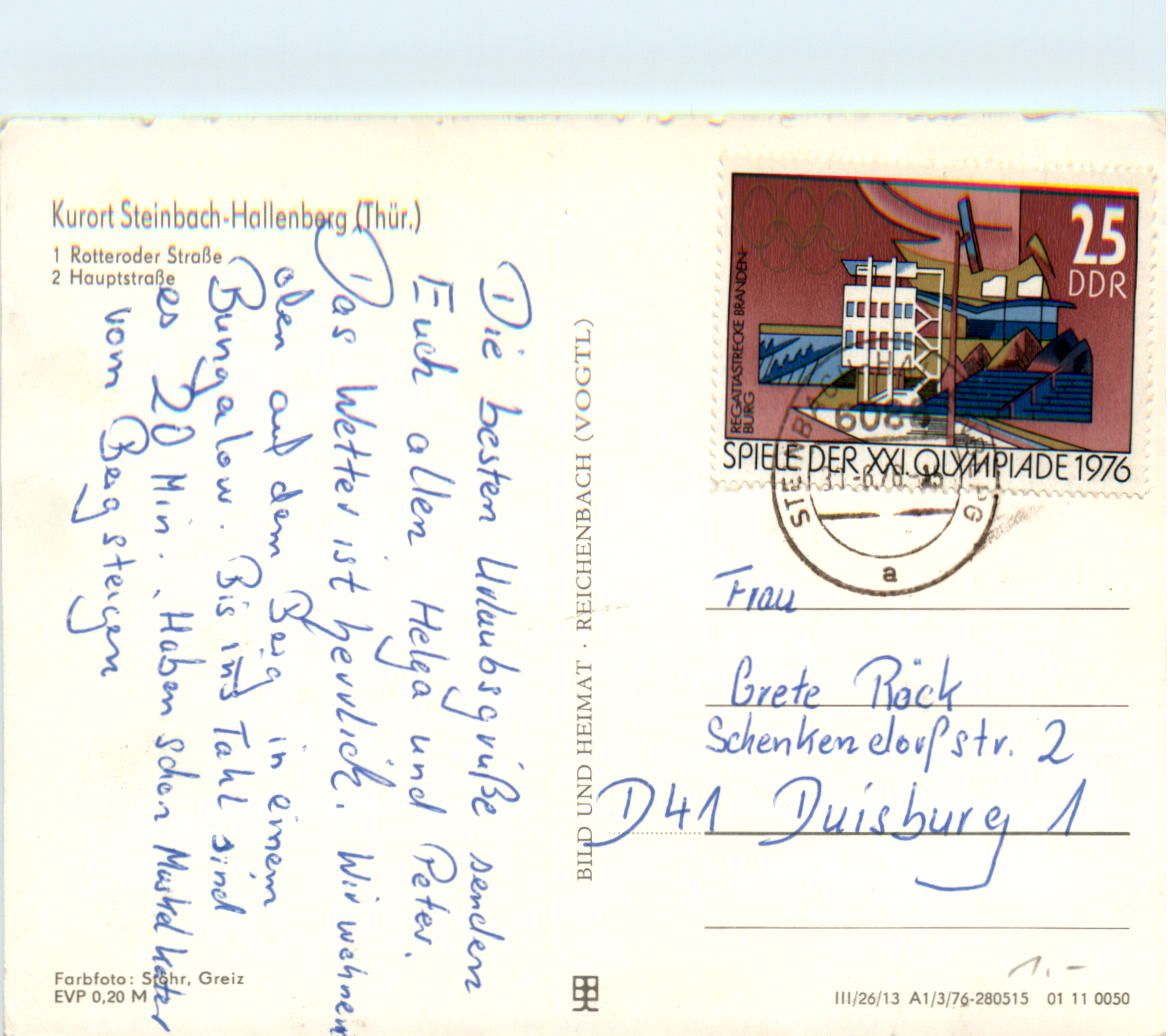 Kurort Steinbach-Hallenberg (Thür.)
1 Rotteroder Straße
2 Hauptstraße
Die besten Urlaubsgrüße senden
Euch allen Helga und Peter.
Das Wetter ist herrlich. Wir wohnen
oben auf dem Berg in einem
Bungalow. Bis ins Tahl sind
es 20 Min. Haben schon Muskelkater
vom Berg steigen
Farbfoto: Stöhr, Greiz
EVP 0,20 M
BILD UND HEIMAT · REICHENBACH (VOGTL)
25
DDR
REGATTASTRECKE BRANDEN-
BURG
SPIELE DER XXI. OLYMPIADE 1976
608
a
Frau
Grete Röck
Schenkendorfstr. 2
D41 Duisburg 1
1.-
III/26/13 A1/3/76-280515 01 11 0050